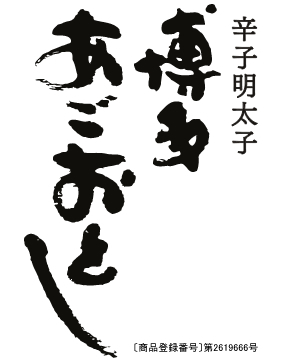 辛子明太子
博多
あごおとし
〔商品登録番号〕第2619666号